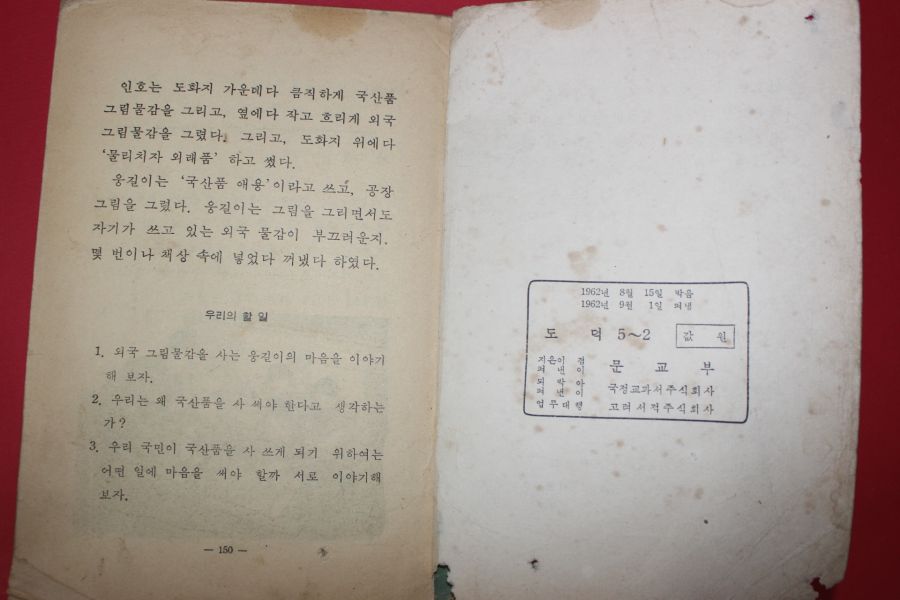 인호는 도화지 가운데다 큼직하게 국산품
그림물감을 그리고, 옆에다 작고 흐리게 외국
그림물감을 그렸다. 그리고, 도화지 위에다
‘물리치자 외래품’ 하고 썼다.
웅길이는 ‘국산품 애용’이라고 쓰고, 공장
그림을 그렸다. 웅길이는 그림을 그리면서도
자기가 쓰고 있는 외국 물감이 부끄러운지.
몇 번이나 책상 속에 넣었다 꺼냈다 하였다.
우리의 할 일
1. 외국 그림물감을 사는 웅길이의 마음을 이야기
해 보자.
2. 우리는 왜 국산품을 사 써야 한다고 생각하는
가?
3. 우리 국민이 국산품을 사 쓰게 되기 위하여는
어떤 일에 마음을 써야 할까 서로 이야기해
보자.
— 150 —
1962년 8월 15일 박음
1962년 9월 1일 펴냄
도 덕 5~2
값 원
지은이 겸
펴낸이 문 교 부
되 박 아
펴 낸 이 국정교과서주식회사
업무대행 고려서적주식회사